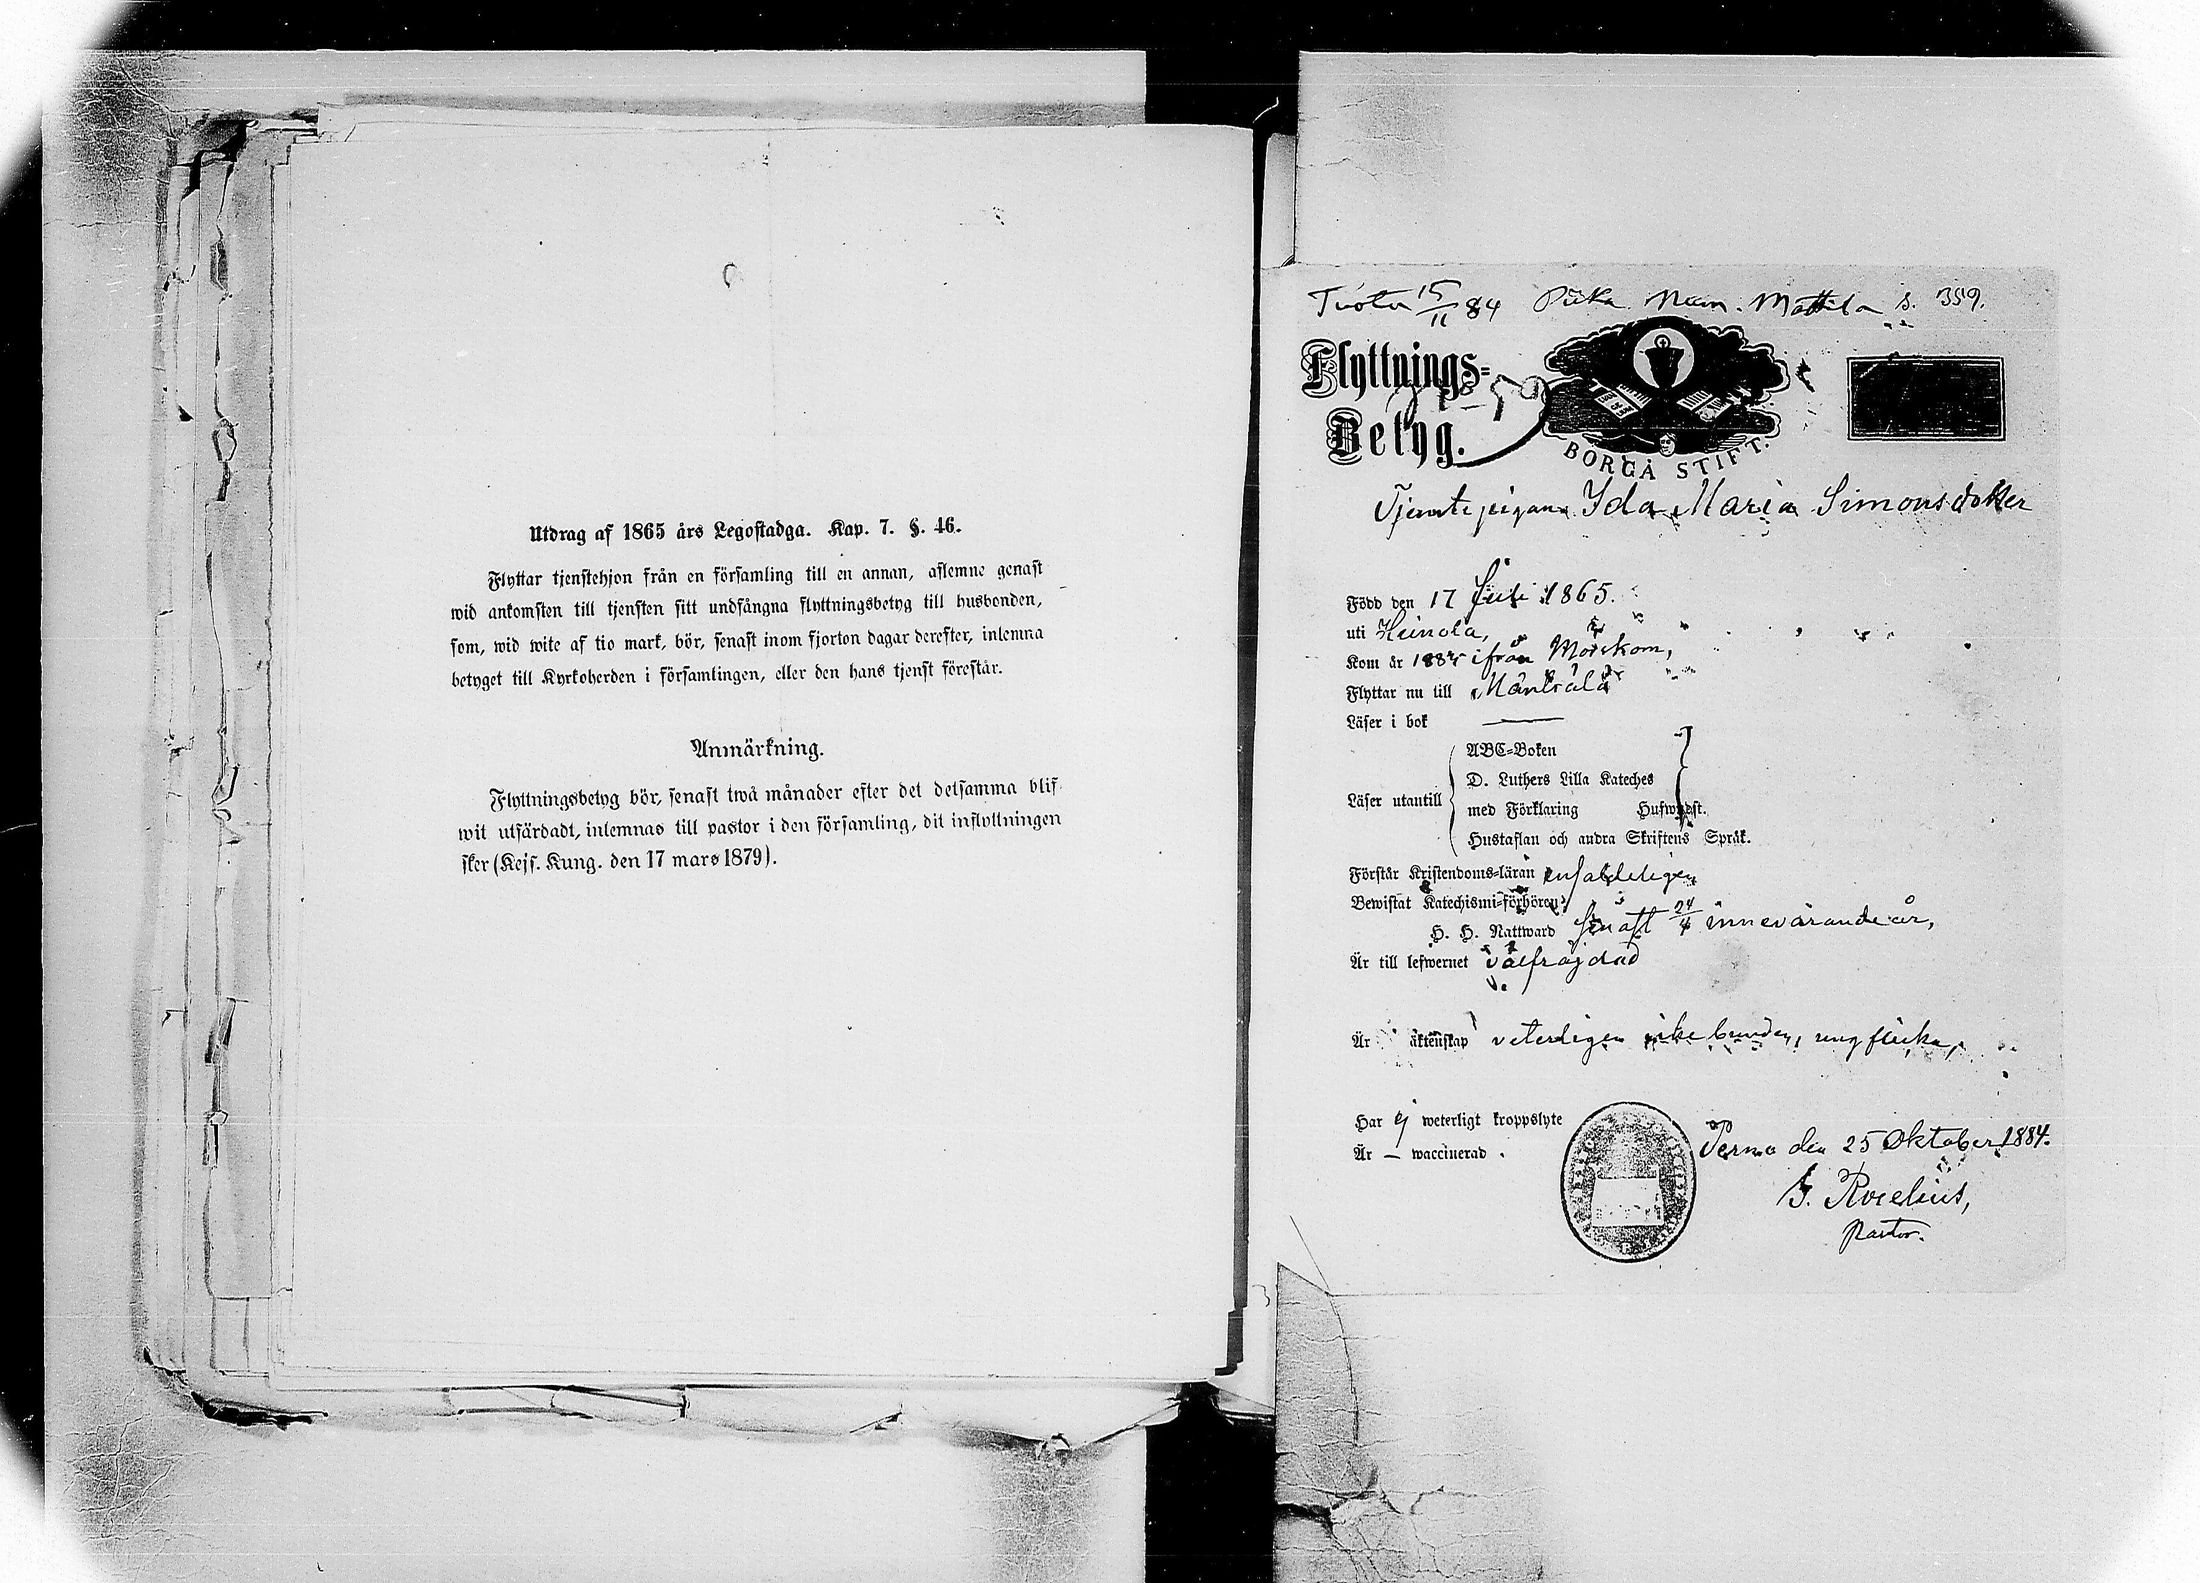 Utdrag af 1865 års Legostadga. Kap. 7. §. 46.
Flyttar tjenstehjon från en församling till en annan, aflemne genast
wid ankomsten till tjensten sitt undfångna flyttningsbetyg till husbonden,
som, wid wite af tio mark, bör, senast inom fjorton dagar derefter, inlemna
betyget till Kyrkoherden i församlingen, eller den hans tjenst förestår.
Anmärkning.
Flyttningsbetyg bör, senast twå månader efter det detsamma blif-
wit utfärdadt, inlemnas till pastor i den församling, dit inflyttningen
sker (Kejs. Kung. den 17 mars 1879).
15/11 84 Piika Mattila s. 359.
Flyttnings-
Betyg.
BORGÅ STIFT.
Tjenstepigan Ida Maria Simonsdotter
Född den 17 Juli 1865.
uti Heinola,
Kom år ifrån Mörskom,
Flyttar nu till Mäntsälä
Läser i bok —
Läser utantill
ABC-Boken
D. Luthers Lilla Kateches
med Förklaring Hufwudst.
Hustaflan och andra Skriftens Språk.
Förstår Kristendoms-läran enfaldeligen
Bewistat Katechismi-förhören
H. H. Nattward senast 24/4 innevarande år,
Är till lefwernet välfräjdad
Är äktenskap veterligen icke bunden, ung flicka,
Har ej weterligt kroppslyte
Är — waccinerad.
Perno den 25 Oktober 1884.
Roselius,
Pastor.